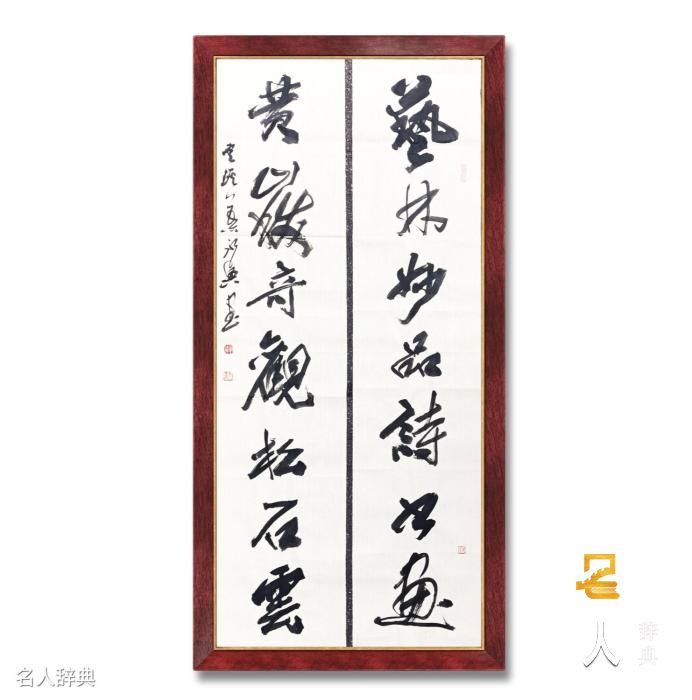 藝林妙品詩书畫
黄嶽奇觀松石雲
名人辞典
名人辞典